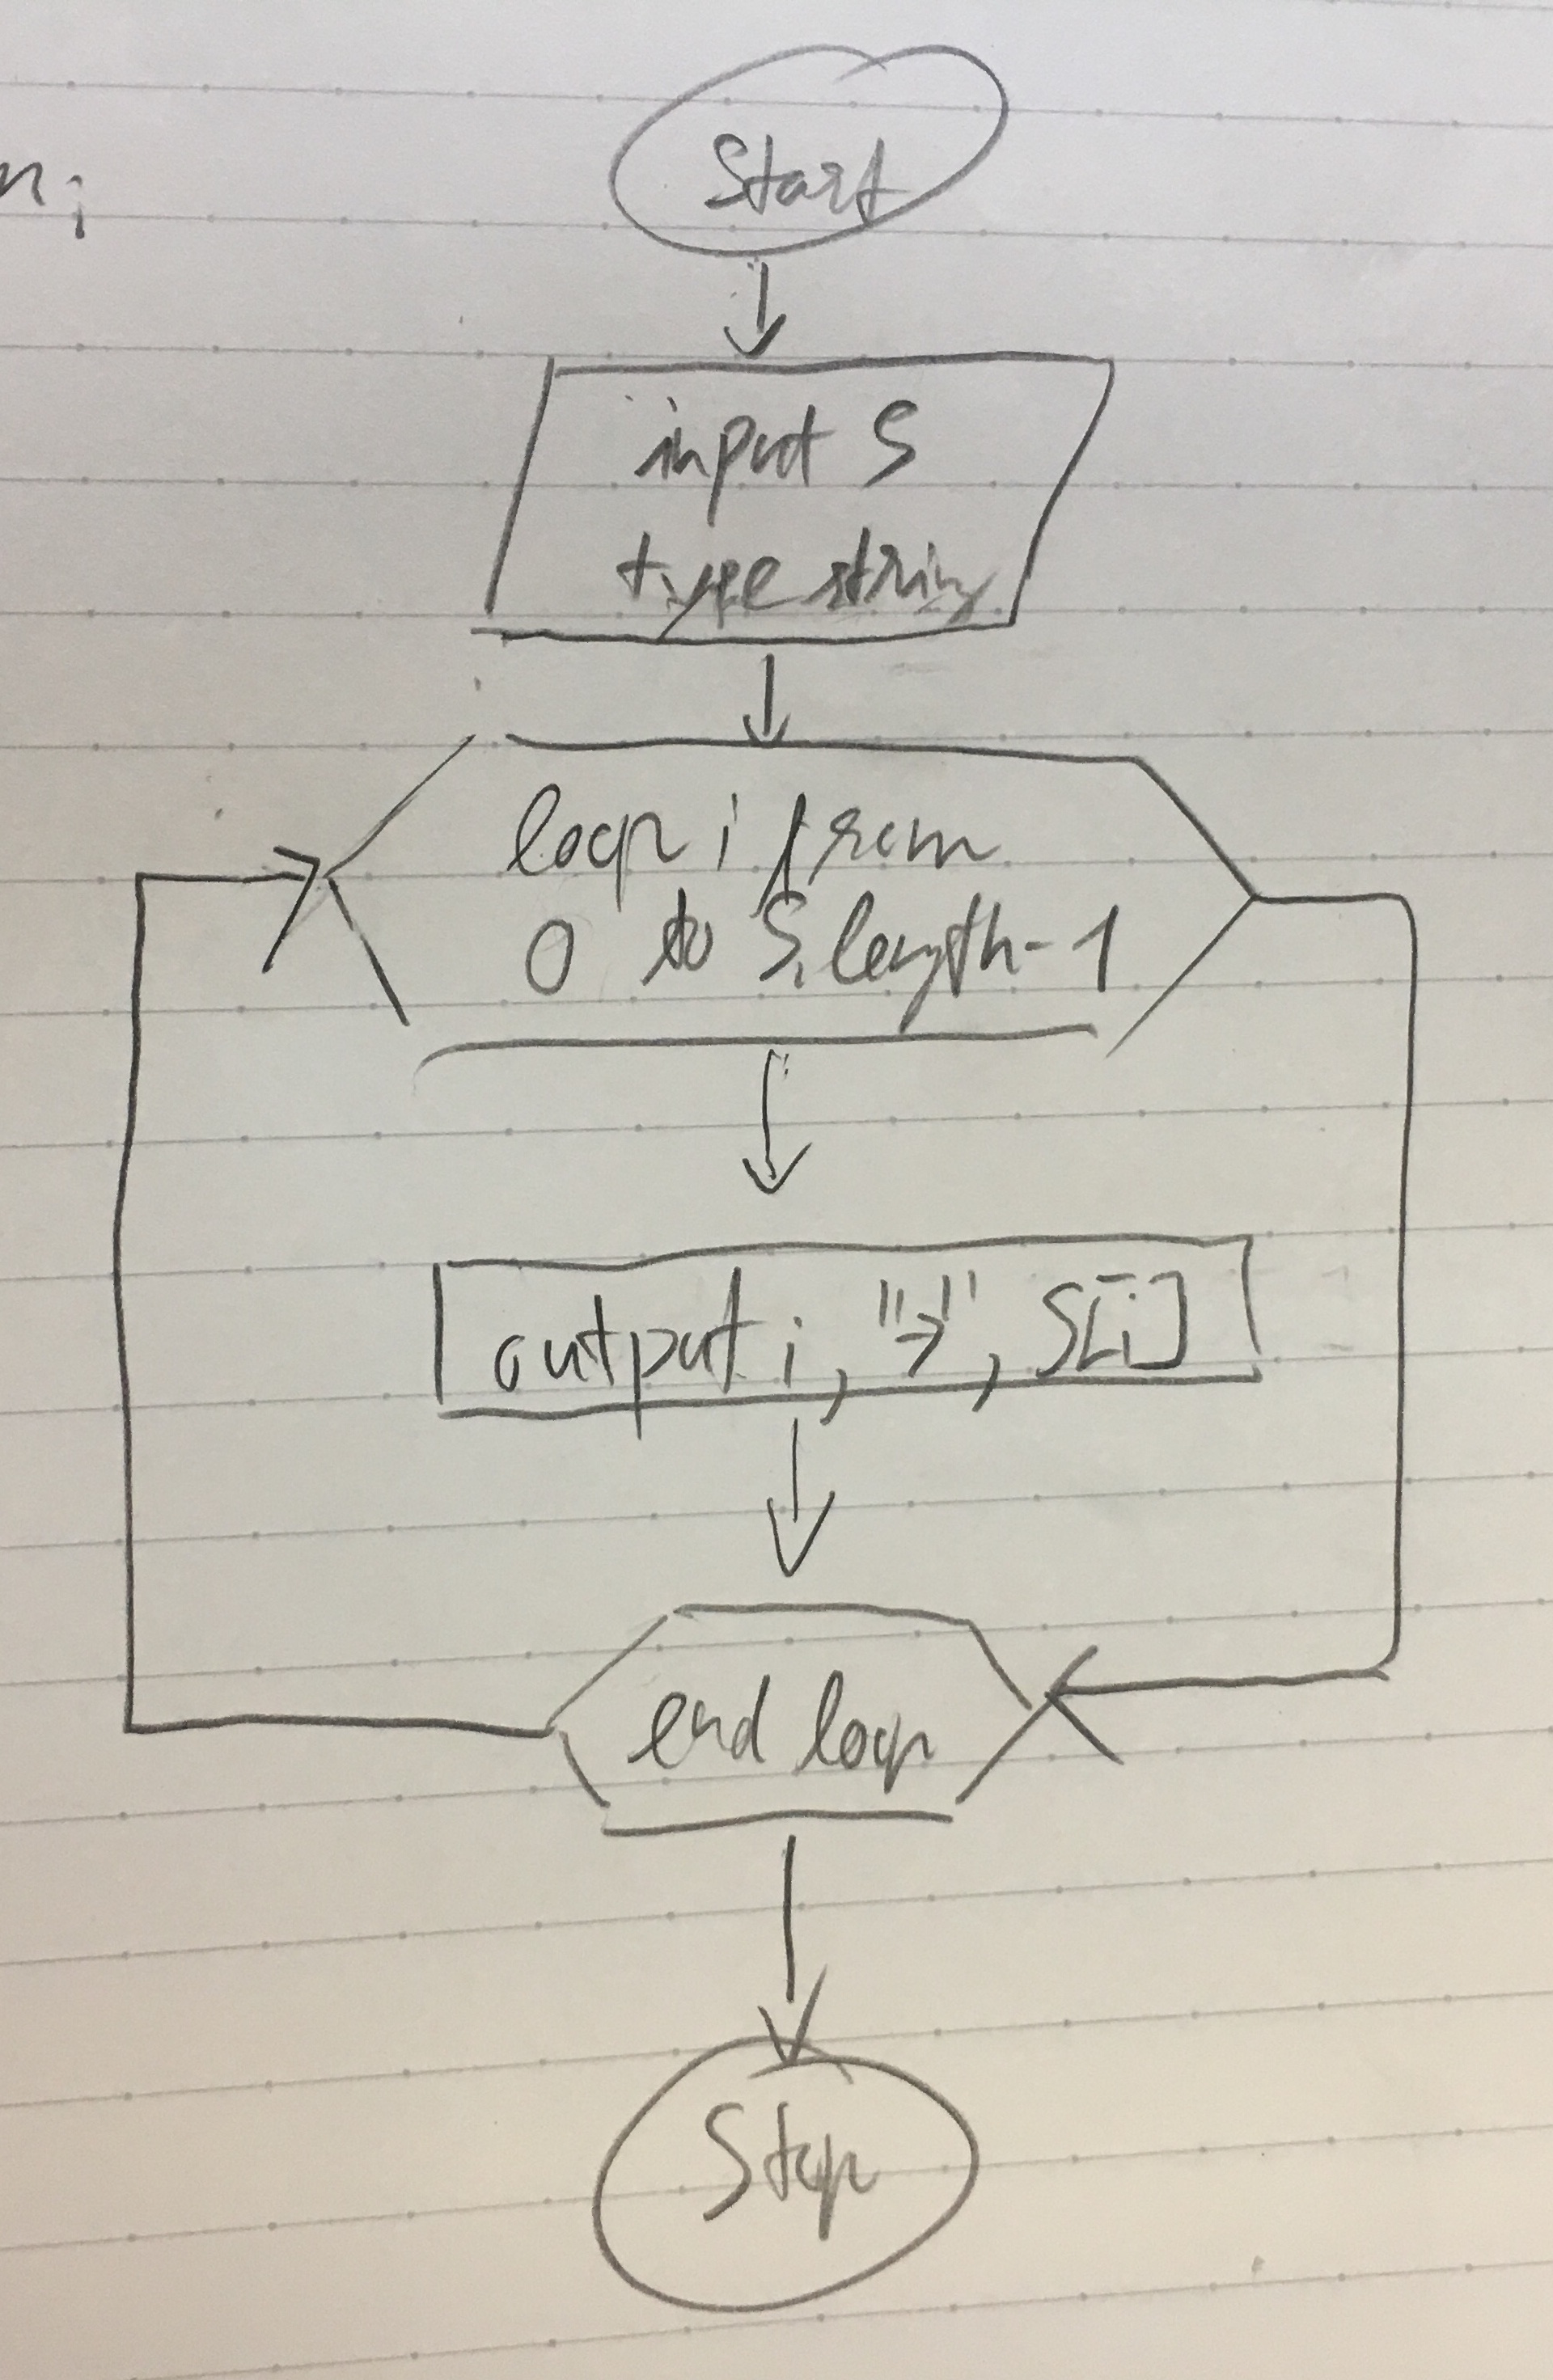 n;
Start
input S
type string
loop i from
0 to S.length-1
output i, "→", S[i]
end loop
Stop